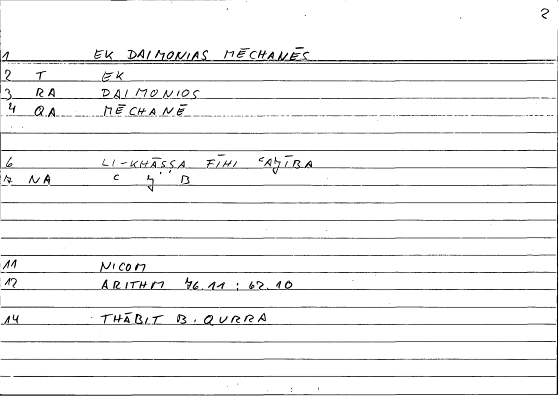 2
1 EK DAIMONIAS MĒCHANĒS
2 T EK
3 RA DAIMONIOS
4 QA MĒCHANĒ
6 LI-KHĀṢṢA FĪHI ʿAǦĪBA
7 NA ʿ Ǧ B
11 NICOM
12 ARITHM 76.11 : 62.10
14 THĀBIT B. QURRA